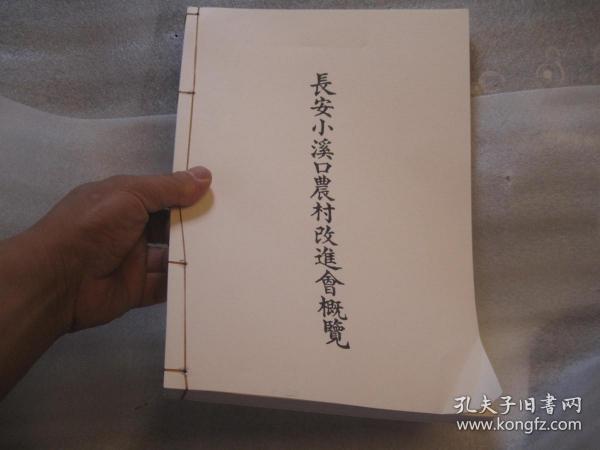 長安小溪口農村改進會概覽
孔夫子旧书网
www.kongfz.com